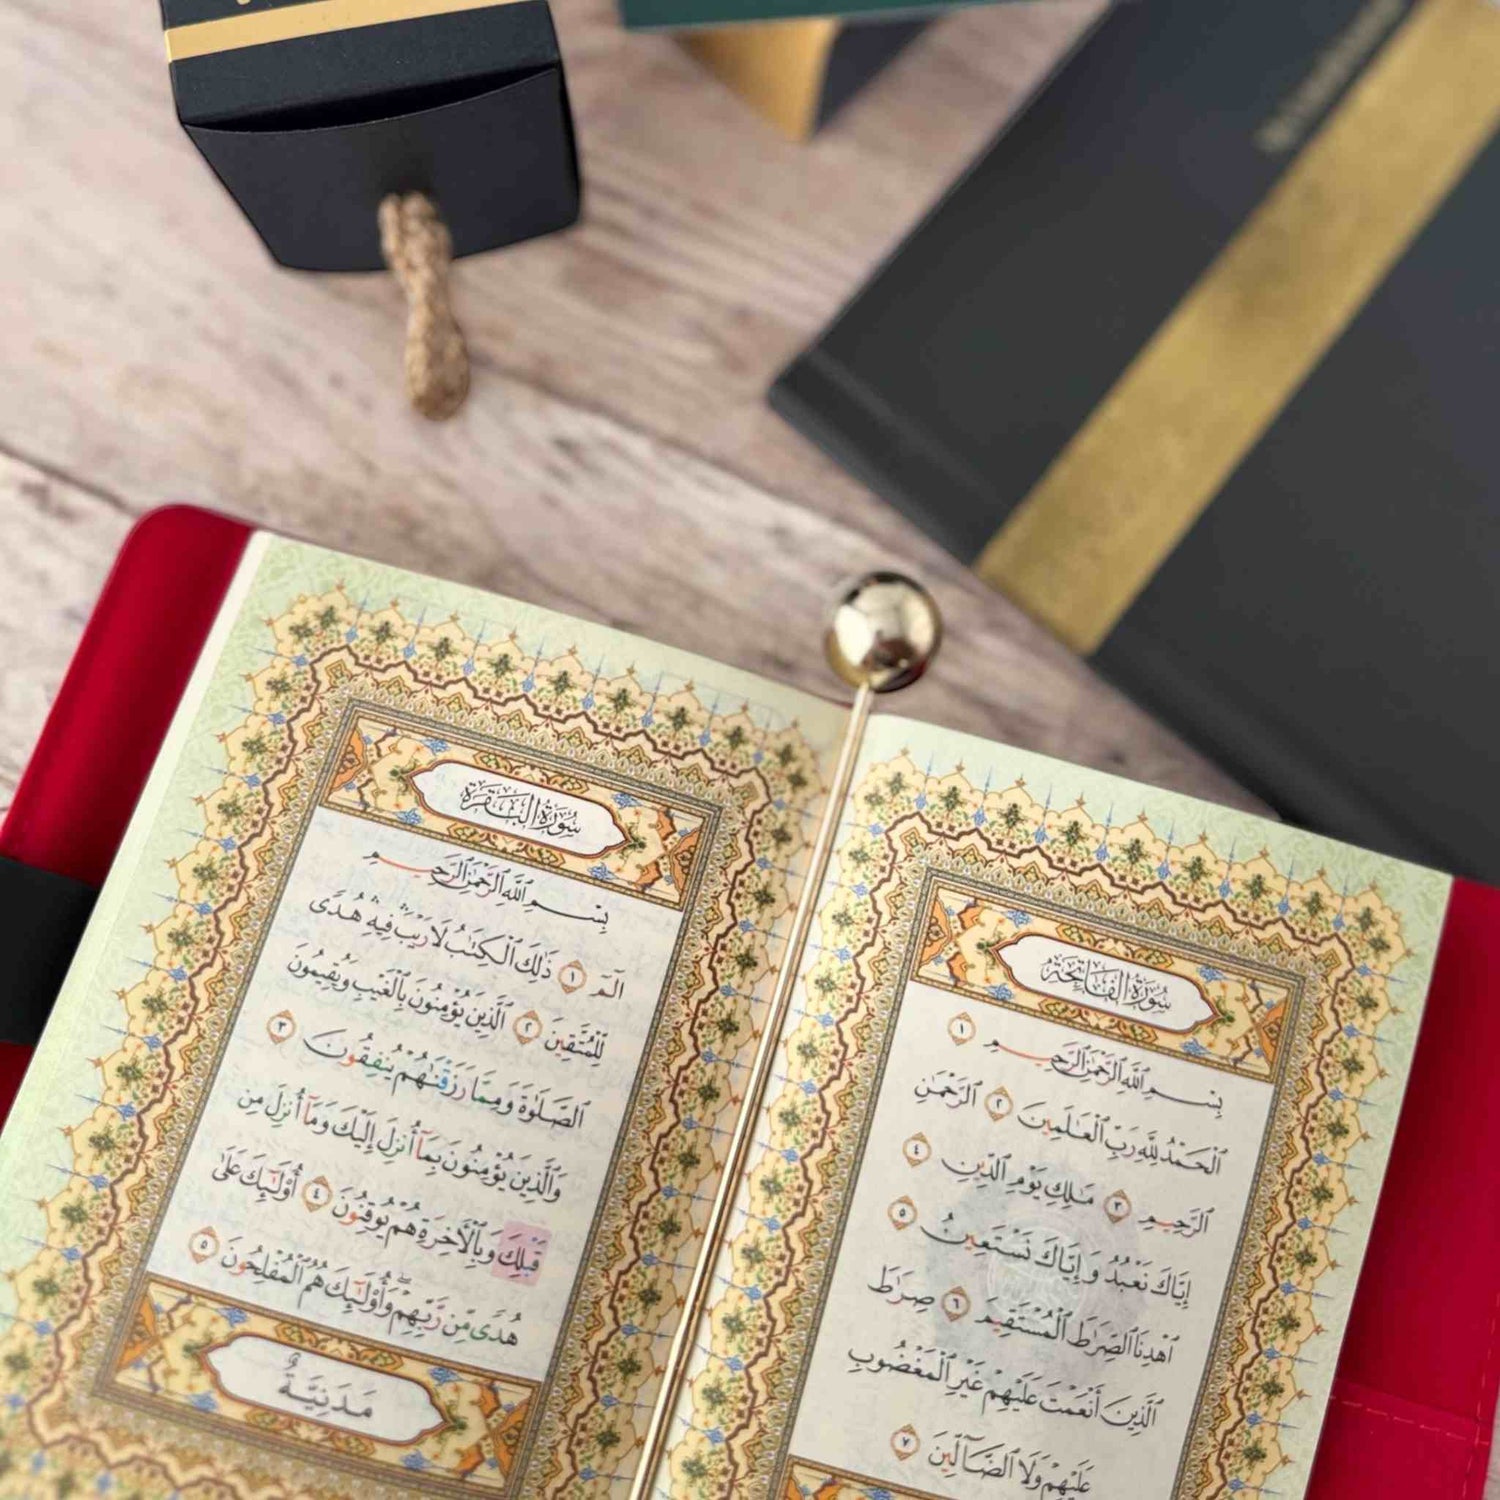 سُورَةُ الْفَاتِحَةِ
بِسْمِ ٱللَّهِ ٱلرَّحْمَٰنِ ٱلرَّحِيمِ ١
ٱلْحَمْدُ لِلَّهِ رَبِّ ٱلْعَٰلَمِينَ ٢ ٱلرَّحْمَٰنِ
ٱلرَّحِيمِ ٣ مَٰلِكِ يَوْمِ ٱلدِّينِ ٤
إِيَّاكَ نَعْبُدُ وَإِيَّاكَ نَسْتَعِينُ ٥
ٱهْدِنَا ٱلصِّرَٰطَ ٱلْمُسْتَقِيمَ ٦ صِرَٰطَ
ٱلَّذِينَ أَنْعَمْتَ عَلَيْهِمْ غَيْرِ ٱلْمَغْضُوبِ
عَلَيْهِمْ وَلَا ٱلضَّآلِّينَ ٧
سُورَةُ الْبَقَرَةِ
بِسْمِ ٱللَّهِ ٱلرَّحْمَٰنِ ٱلرَّحِيمِ
الٓمٓ ١ ذَٰلِكَ ٱلْكِتَٰبُ لَا رَيْبَۛ فِيهِۛ هُدًى
لِّلْمُتَّقِينَ ٢ ٱلَّذِينَ يُؤْمِنُونَ بِٱلْغَيْبِ وَيُقِيمُونَ
ٱلصَّلَوٰةَ وَمِمَّا رَزَقْنَٰهُمْ يُنفِقُونَ ٣
وَٱلَّذِينَ يُؤْمِنُونَ بِمَآ أُنزِلَ إِلَيْكَ وَمَآ أُنزِلَ مِن
قَبْلِكَ وَبِٱلْءَاخِرَةِ هُمْ يُوقِنُونَ ٤ أُو۟لَٰٓئِكَ عَلَىٰ
هُدًى مِّن رَّبِّهِمْۖ وَأُو۟لَٰٓئِكَ هُمُ ٱلْمُفْلِحُونَ ٥
مَدَنِيَّةٌ